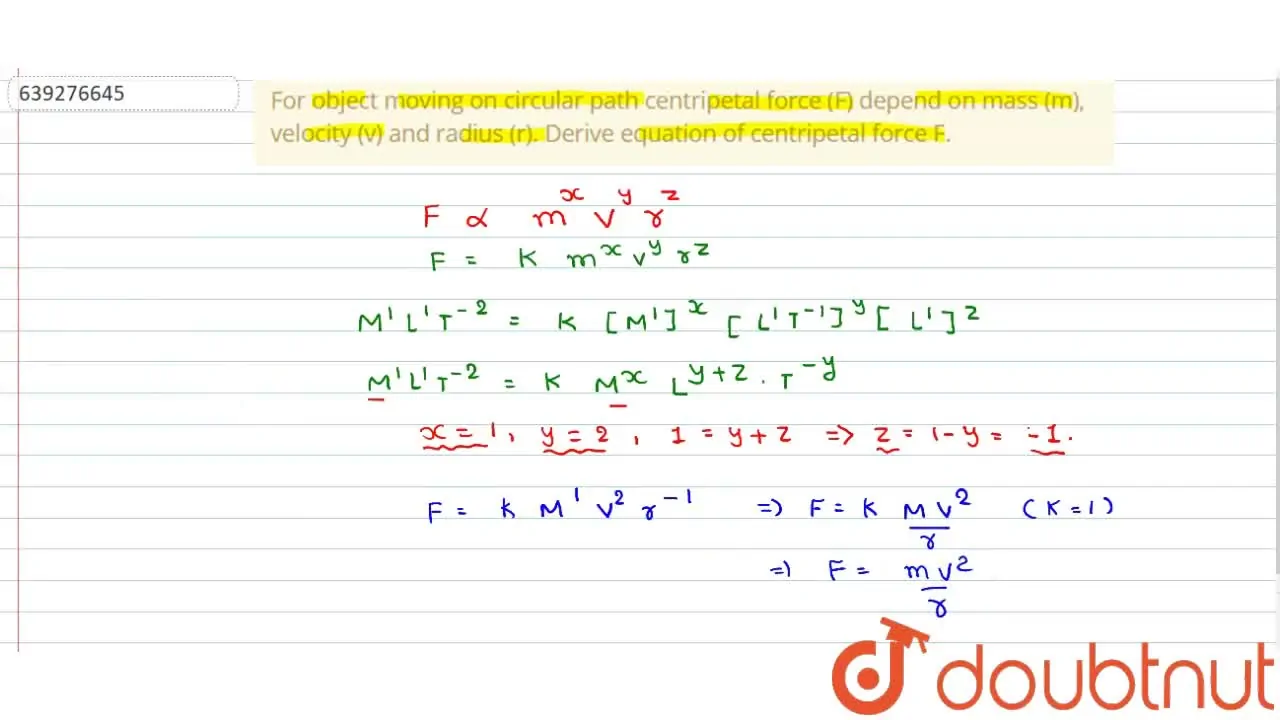 639276645
For object moving on circular path centripetal force (F) depend on mass (m),
velocity (v) and radius (r). Derive equation of centripetal force F.
F ∝ m^x v^y r^z
F = K m^x v^y r^z
M¹L¹T⁻² = K [M¹]^x [L¹T⁻¹]^y [L¹]^z
M¹L¹T⁻² = K M^x L^(y+z) . T^(-y)
x = 1, y = 2, 1 = y + z => z = 1 - y = -1.
F = K M¹ V² r⁻¹ => F = K MV²/r (K = 1)
=> F = mv²/r
doubtnut